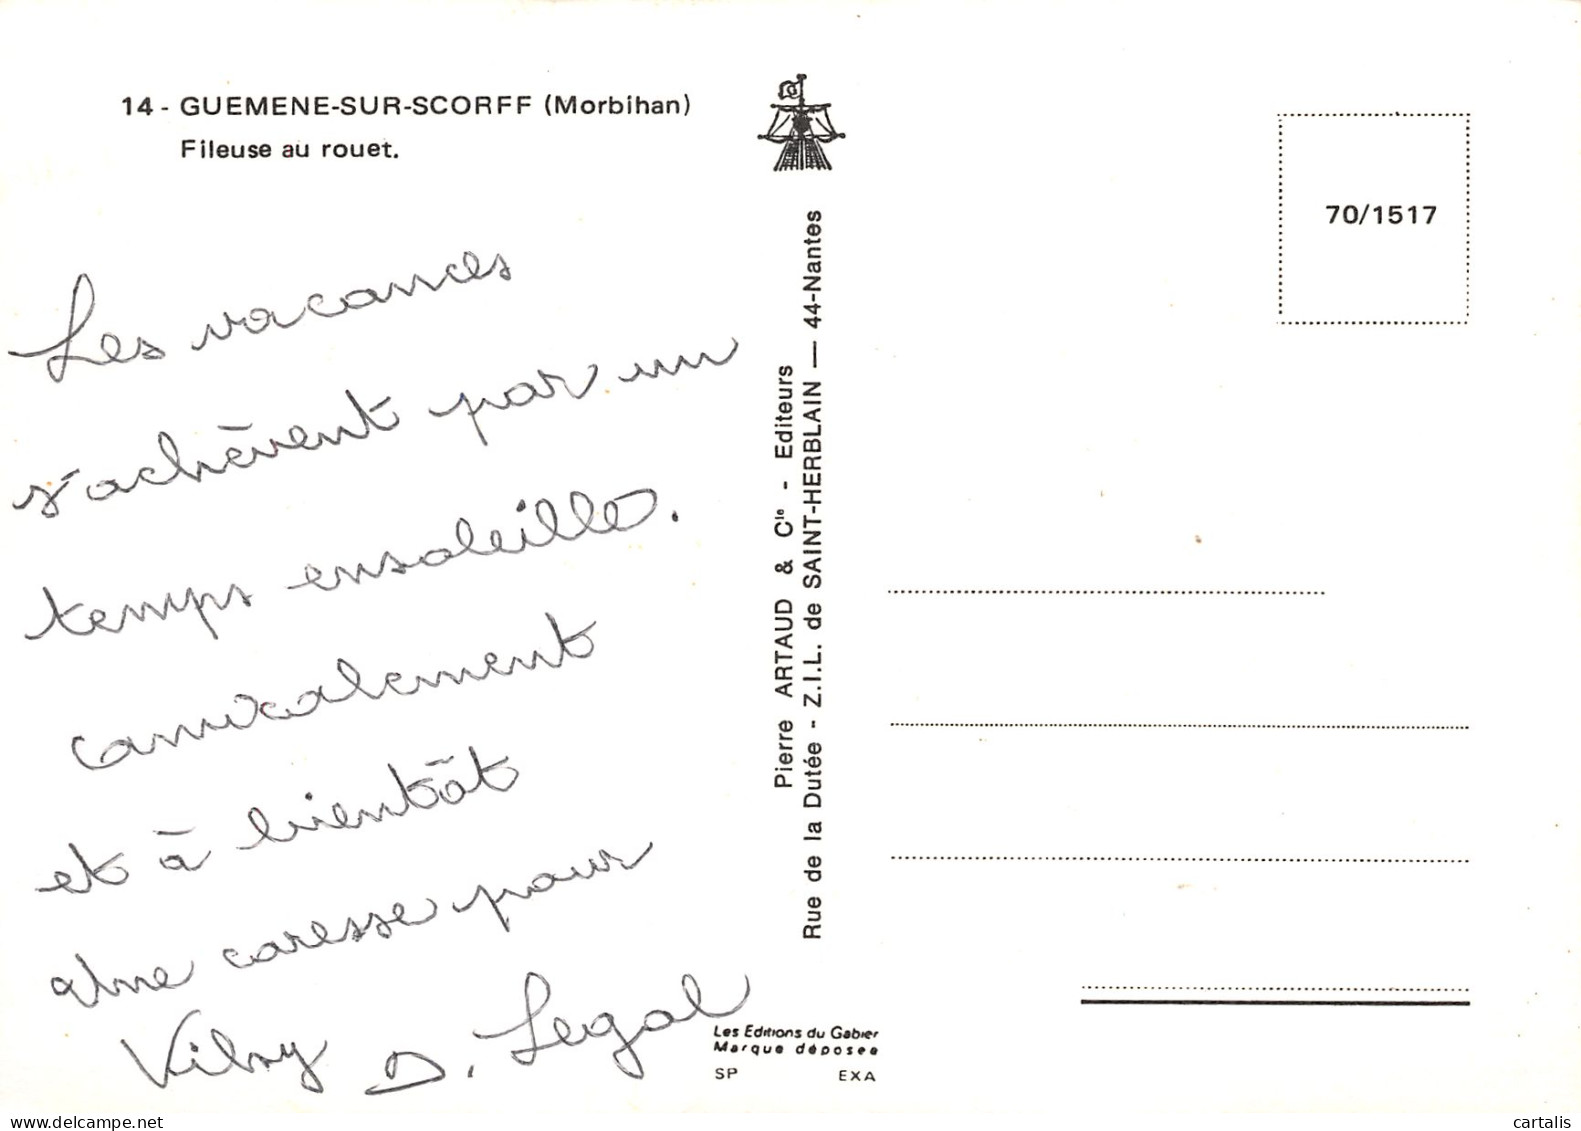 14 - GUEMENE-SUR-SCORFF (Morbihan)
Fileuse au rouet.
Les vacances
s'achèvent par un
temps ensoleillé.
amicalement
et à bientôt
Une caresse pour
D. Legal
Pierre ARTAUD & Cie - Editeurs
Rue de la Dutée - Z.I.L. de SAINT-HERBLAIN — 44-Nantes
70/1517
Les Editions du Gabier
Marque déposée
SP EXA
cartalis